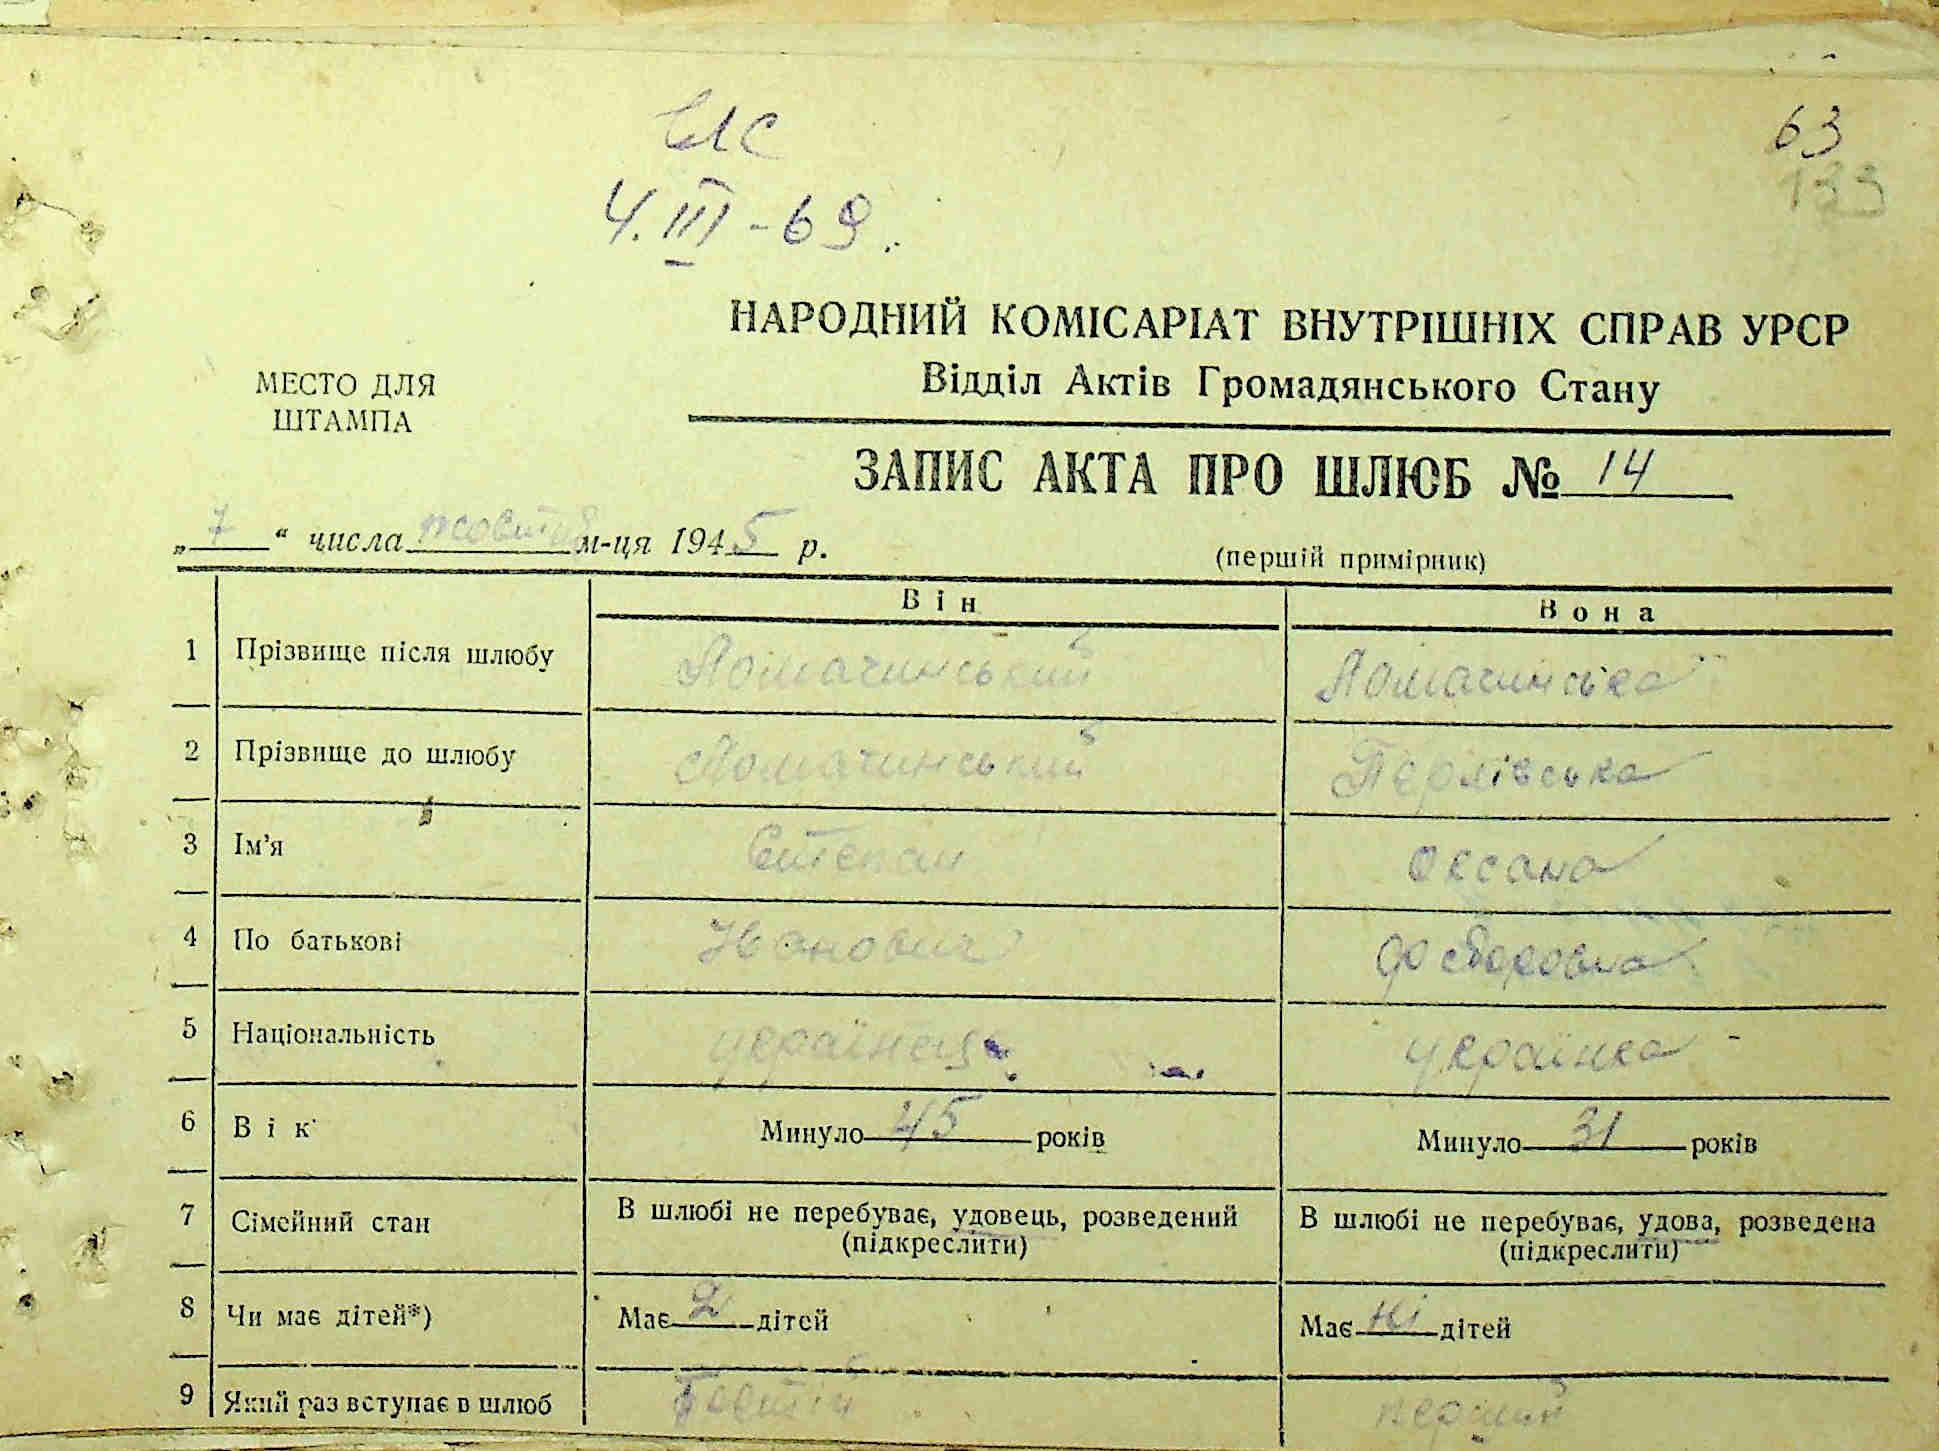 63
133
4.III-69.
НАРОДНИЙ КОМІСАРІАТ ВНУТРІШНІХ СПРАВ УРСР
Відділ Актів Громадянського Стану
МЕСТО ДЛЯ
ШТАМПА
ЗАПИС АКТА ПРО ШЛЮБ № 14
„ 7 “ числа жовтня м-ця 1945 р.
(першій примірник)
Він Вона
1 Прізвище після шлюбу Ломачинський Ломачинська
2 Прізвище до шлюбу Ломачинський
3 Ім'я Степан Оксана
4 По батькові Іванович
5 Національність українець українка
6 Вік Минуло 45 років Минуло 31 років
7 Сімейний стан В шлюбі не перебуває, удовець, розведений В шлюбі не перебуває, удова, розведена
(підкреслити) (підкреслити)
8 Чи має дітей*) Має 2 дітей Має ні дітей
9 Який раз вступає в шлюб перший